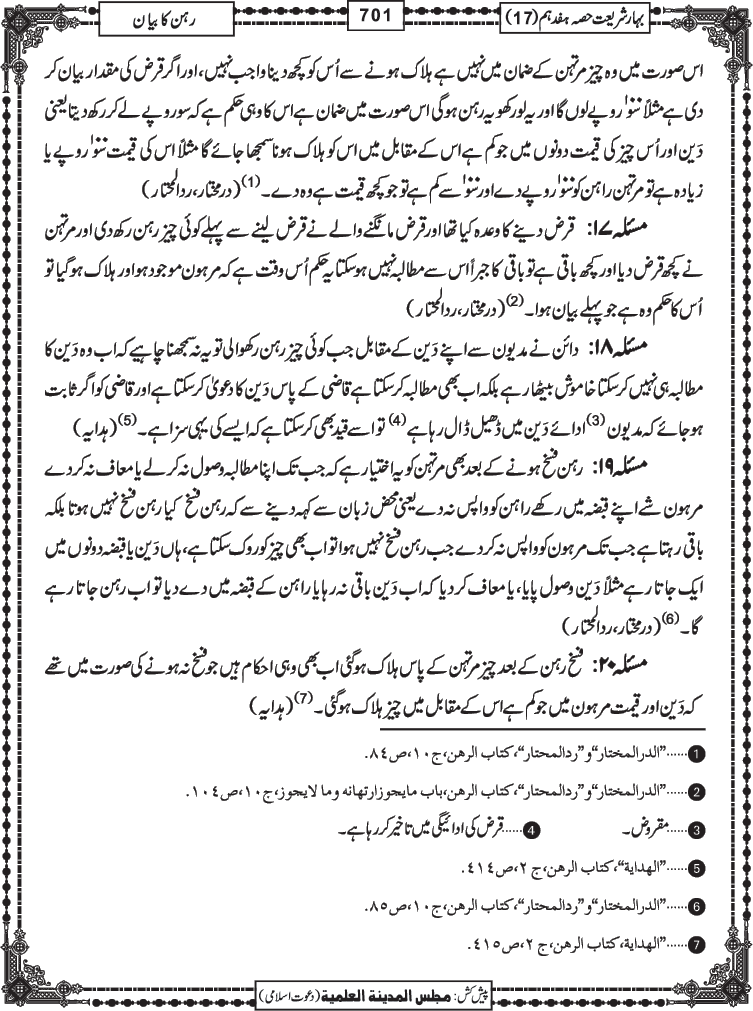 بہارِ شریعت حصہ ہفدہم (17)
701
رہن کا بیان
اس صورت میں وہ چیز مرتہن کے ضمان میں نہیں ہے ہلاک ہونے سے اُس کو کچھ دینا واجب نہیں، اور اگر قرض کی مقدار بیان کر
دی ہے مثلاً سو۱۰۰ روپے لوں گا اور یہ لو رکھو یہ رہن ہوگی اس صورت میں ضمان ہے اس کا وہی حکم ہے کہ سو روپے لے کر رکھ دیتا یعنی
دَین اور اُس چیز کی قیمت دونوں میں جو کم ہے اس کے مقابل میں اس کو ہلاک ہونا سمجھا جائے گا مثلاً اس کی قیمت سو۱۰۰ روپے یا
زیادہ ہے تو مرتہن راہن کو سو۱۰۰ روپے دے اور سو۱۰۰ سے کم ہے تو جو کچھ قیمت ہے وہ دے۔(1) (درمختار، ردالمحتار)
مسئلہ ۱۷: قرض دینے کا وعدہ کیا تھا اور قرض مانگنے والے نے قرض لینے سے پہلے کوئی چیز رہن رکھ دی اور مرتہن
نے کچھ قرض دیا اور کچھ باقی ہے تو باقی کا جبراً اس سے مطالبہ نہیں ہوسکتا یہ حکم اُس وقت ہے کہ مرہون موجود ہو اور ہلاک ہوگیا تو
اُس کا حکم وہ ہے جو پہلے بیان ہوا۔(2) (درمختار، ردالمحتار)
مسئلہ ۱۸: دائن نے مدیون سے اپنے دَین کے مقابل جب کوئی چیز رہن رکھوالی تو یہ نہ سمجھنا چاہیے کہ اب وہ دَین کا
مطالبہ ہی نہیں کرسکتا خاموش بیٹھا رہے بلکہ اب بھی مطالبہ کرسکتا ہے قاضی کے پاس دَین کا دعویٰ کرسکتا ہے اور قاضی کو اگر ثابت
ہوجائے کہ مدیون(3) ادائے دَین میں ڈھیل ڈال رہا ہے(4) تو اسے قید بھی کرسکتا ہے کہ ایسے کی یہی سزا ہے۔(5) (ہدایہ)
مسئلہ ۱۹: رہن فسخ ہونے کے بعد بھی مرتہن کو یہ اختیار ہے کہ جب تک اپنا مطالبہ وصول نہ کرلے یا معاف نہ کردے
مرہون شے اپنے قبضہ میں رکھے راہن کو واپس نہ دے یعنی محض زبان سے کہہ دینے سے کہ رہن فسخ کیا رہن فسخ نہیں ہوتا بلکہ
باقی رہتا ہے جب تک مرہون کو واپس نہ کردے جب رہن فسخ نہیں ہوا تو اب بھی چیز کو روک سکتا ہے، ہاں دَین یا قبضہ دونوں میں
ایک جاتا رہے مثلاً دَین وصول پایا، یا معاف کردیا کہ اب دَین باقی نہ رہا یا راہن کے قبضہ میں دے دیا تو اب رہن جاتا رہے
گا۔(6) (درمختار، ردالمحتار)
مسئلہ ۲۰: فسخ رہن کے بعد چیز مرتہن کے پاس ہلاک ہوگئی اب بھی وہی احکام ہیں جو فسخ نہ ہونے کی صورت میں تھے
کہ دَین اور قیمت مرہون میں جو کم ہے اس کے مقابل میں چیز ہلاک ہوگئی۔(7) (ہدایہ)
1 ......"الدرالمختار" و "ردالمحتار"، کتاب الرهن، ج ۱۰، ص ۸٤.
2 ......"الدرالمختار" و "ردالمحتار"، کتاب الرهن، باب مایجوز ارتهانه وما لایجوز، ج ۱۰، ص ۱۰٤.
3 ......مقروض۔ 4 ......قرض کی ادائیگی میں تاخیر کر رہا ہے۔
5 ......"الهدایة"، کتاب الرهن، ج ۲، ص ٤۱٤.
6 ......"الدرالمختار" و "ردالمحتار"، کتاب الرهن، ج ۱۰، ص ۸۵.
7 ......"الهدایة، کتاب الرهن، ج ۲، ص ٤۱۵.
پیش کش: مجلس المدینة العلمیة (دعوت اسلامی)